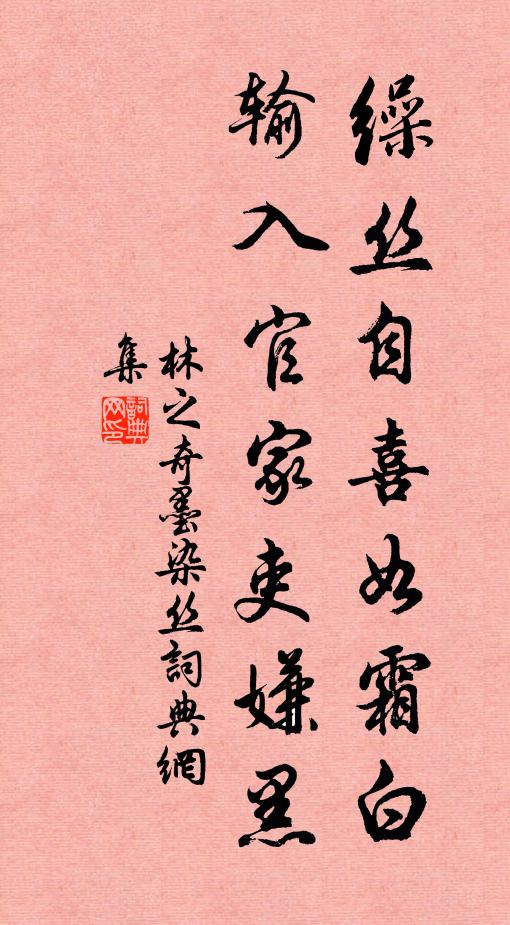 缲丝自喜如霜白
输入官家吏嫌黑
林之奇墨染丝词典网
集
词典网印